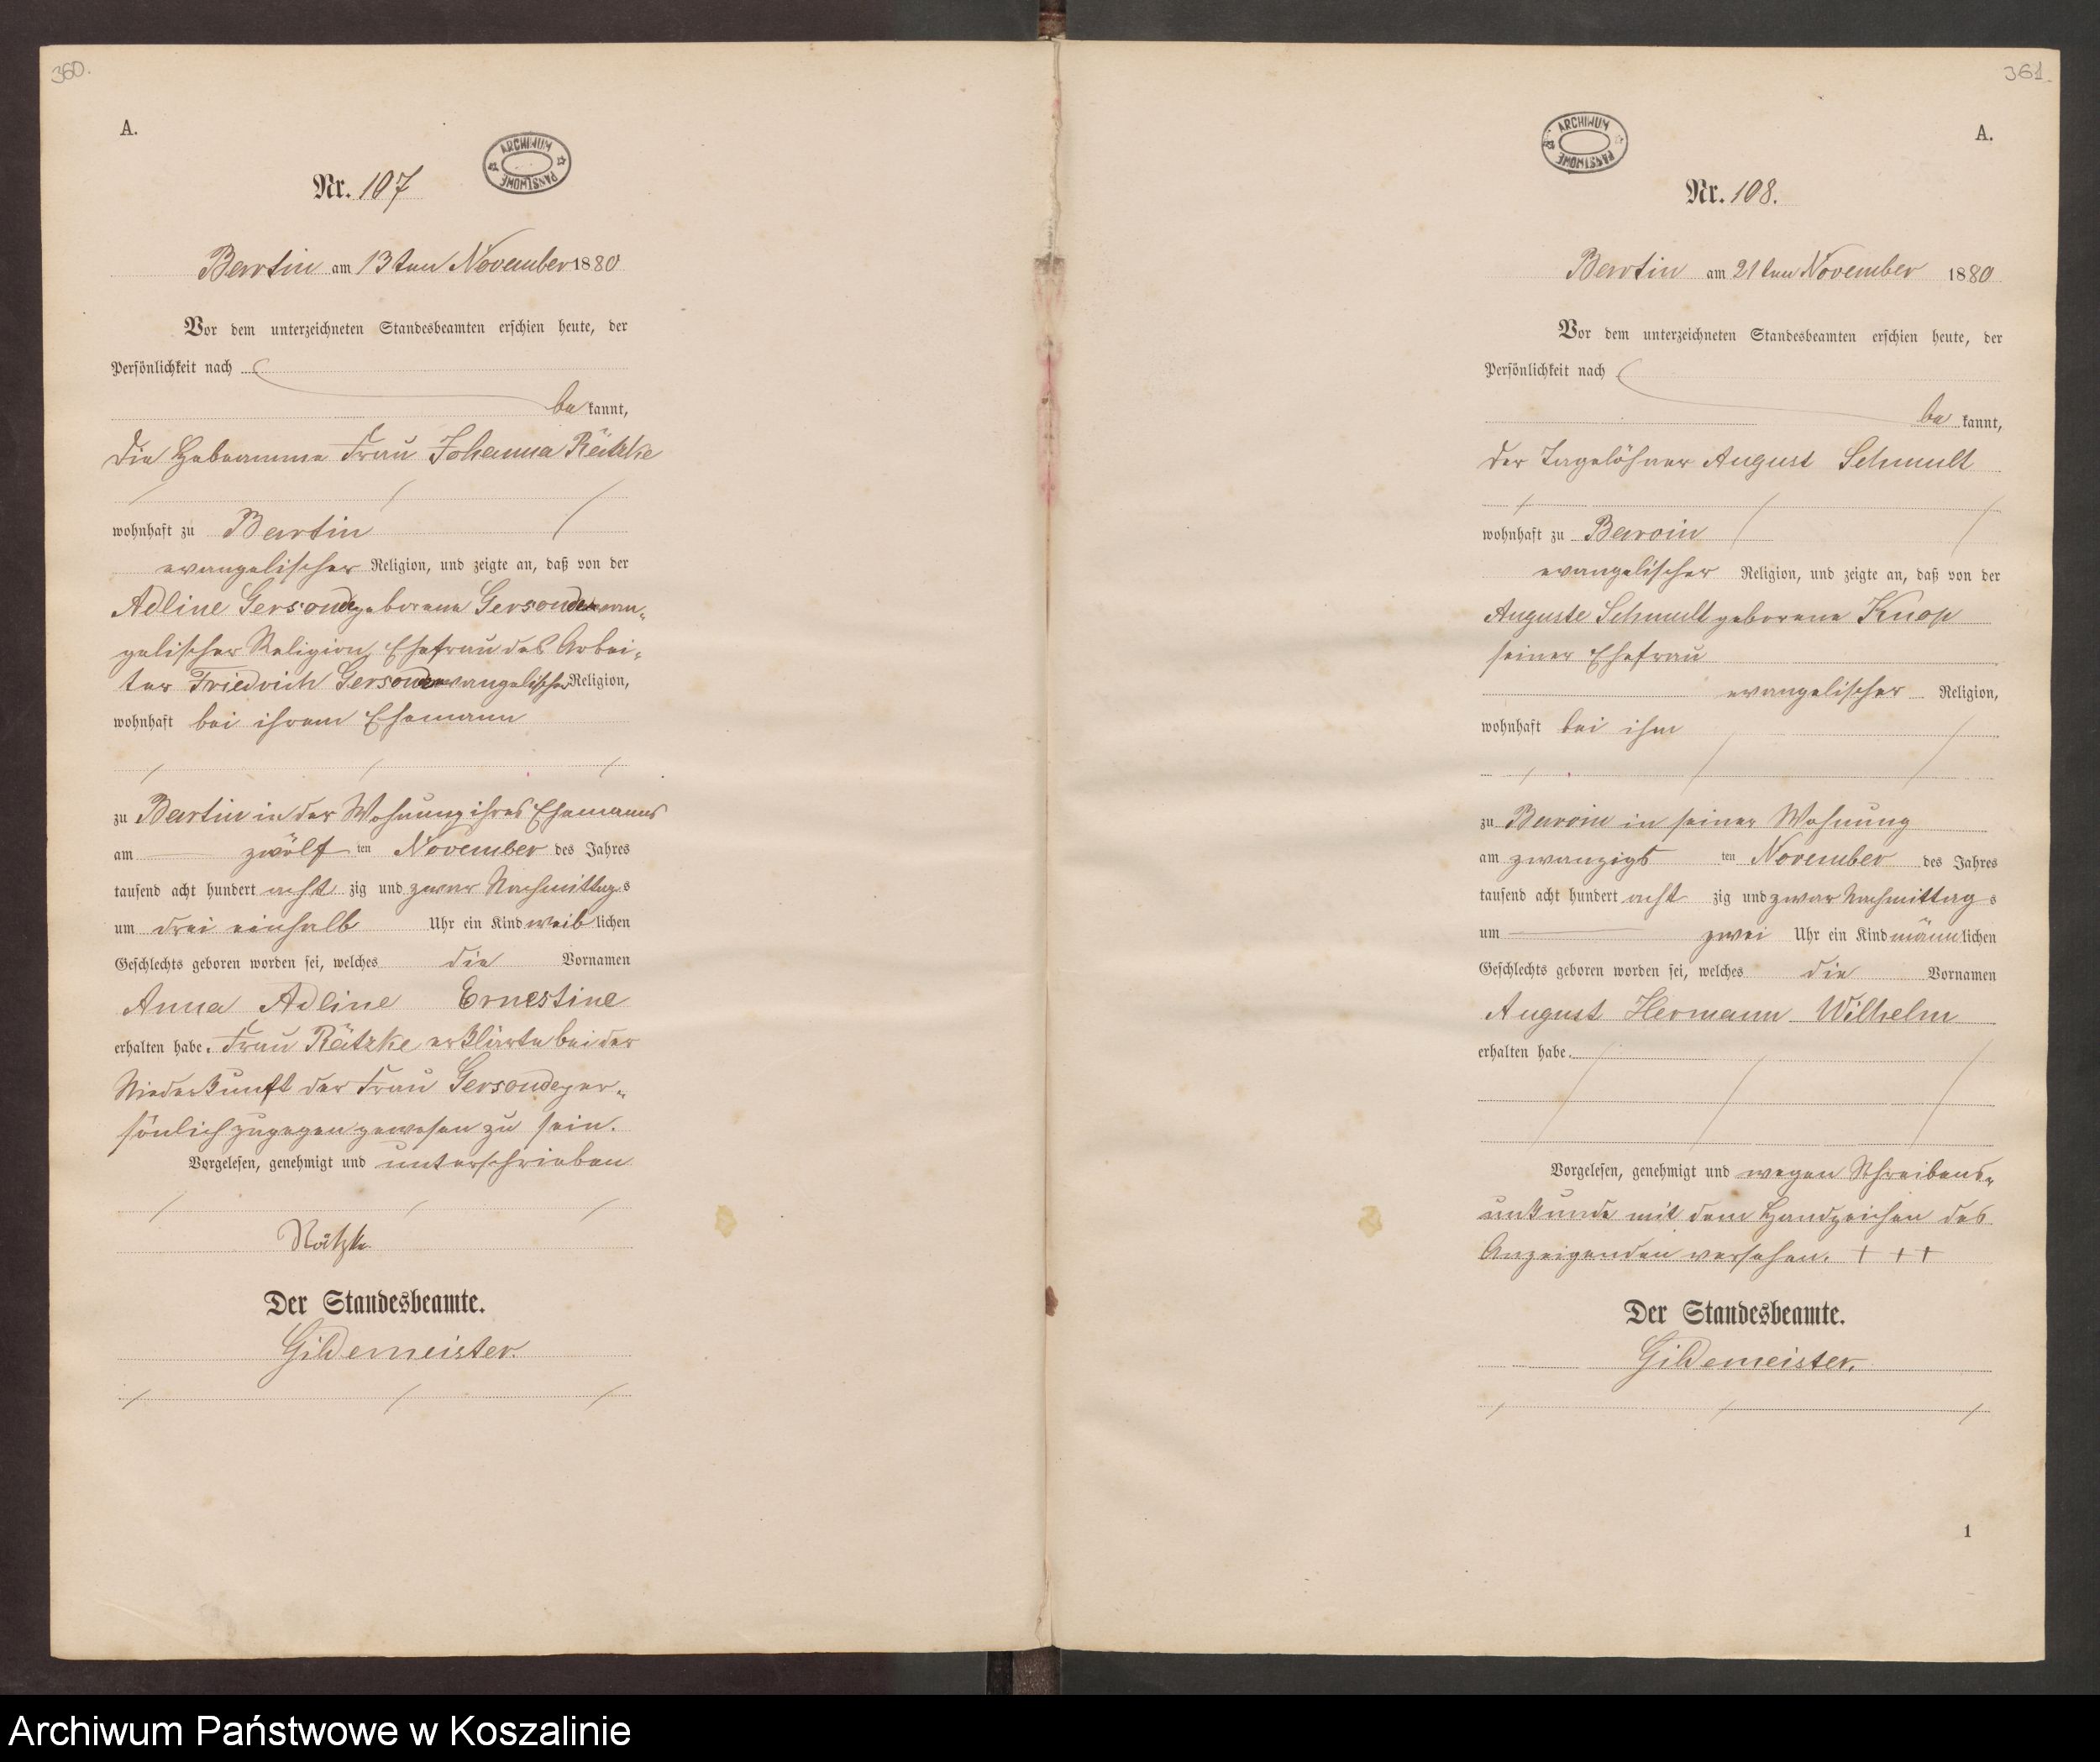 360.
A.
ARCHIWUM PAŃSTWOWE
Nr. 107
Bartin am 13ten November 1880
Vor dem unterzeichneten Standesbeamten erschien heute, der
Persönlichkeit nach
be kannt,
die Hebeamme Frau Johanna Rätzke
wohnhaft zu Bartin
evangelischer Religion, und zeigte an, daß von der
Adline Gersonde geborene Gersonde evan-
gelischer Religion, Ehefrau des Arbei-
ter Friedrich Gersonde evangelischer Religion,
wohnhaft bei ihrem Ehemann
zu Bartin in der Wohnung ihres Ehemanns
am zwölf ten November des Jahres
tausend acht hundert acht zig und zwar Nachmittags
um drei einhalb Uhr ein Kind weib lichen
Geschlechts geboren worden sei, welches die Vornamen
Anna Adline Ernestine
erhalten habe. Frau Rätzke erklärte bei der
Niederkunft der Frau Gersonde per-
sönlich zugegen gewesen zu sein.
Vorgelesen, genehmigt und unterschrieben
Rätzke
Der Standesbeamte.
Gildemeister.
361.
A.
ARCHIWUM PAŃSTWOWE
Nr. 108.
Bartin am 21ten November 1880
Vor dem unterzeichneten Standesbeamten erschien heute, der
Persönlichkeit nach
be kannt,
der Tagelöhner August Schmult
wohnhaft zu Barvin
evangelischer Religion, und zeigte an, daß von der
Auguste Schmult geborene Knop
seiner Ehefrau
evangelischer Religion,
wohnhaft bei ihm
zu Barvin in seiner Wohnung
am zwanzigs ten November des Jahres
tausend acht hundert acht zig und zwar Nachmittag s
um zwei Uhr ein Kind männ lichen
Geschlechts geboren worden sei, welches die Vornamen
August Hermann Wilhelm
erhalten habe.
Vorgelesen, genehmigt und wegen Schreibens-
unkunde mit dem Handzeichen des
Anzeigenden versehen. + + +
Der Standesbeamte.
Gildemeister.
1
Archiwum Państwowe w Koszalinie